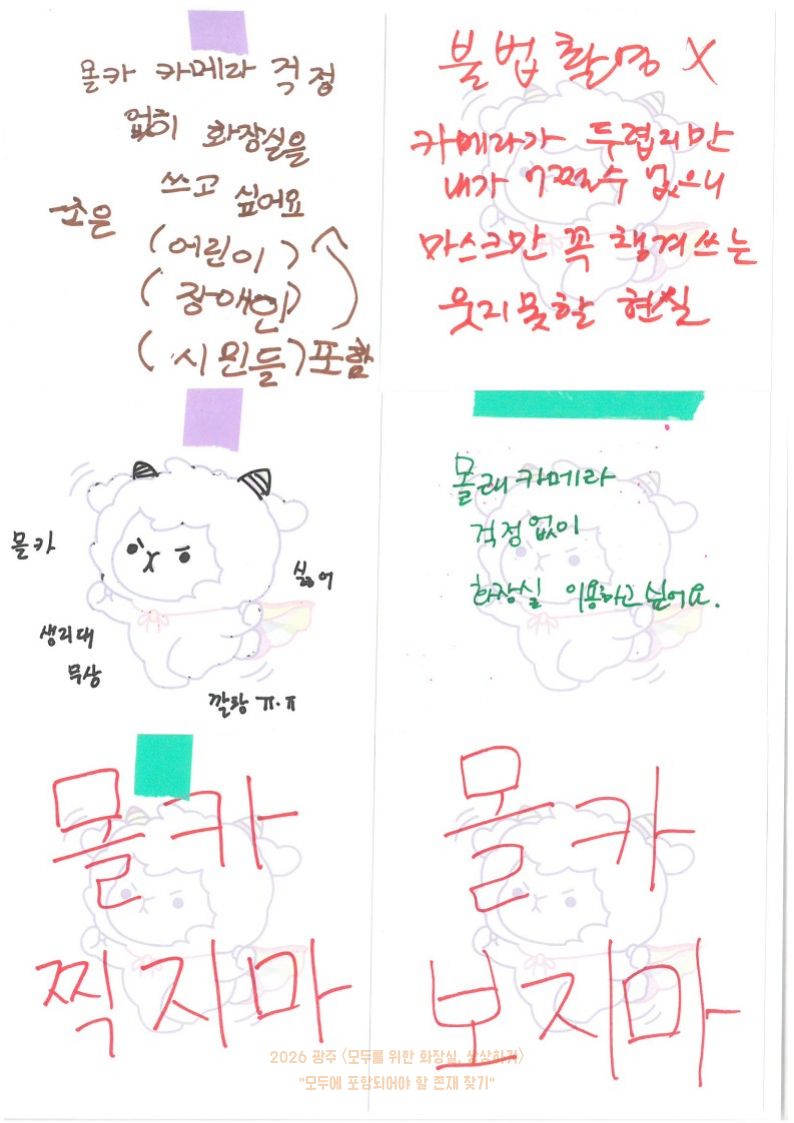 몰카 카메라 걱정
없히 화장실을
쓰고 싶어요
(어린이)
(장애인)
(시민들) 포함
불법촬영 X
카메라가 두렵지만
내가 어쩔수 없으니
마스크만 꼭 챙겨쓰는
웃지못할 현실
몰카
싫어
생리대
무상
깔창 ㅠ.ㅠ
몰래카메라
걱정없이
화장실 이용하고싶어요.
몰카
찍지마
몰카
보지마
2026 광주 〈모두를 위한 화장실, 상상하기〉
"모두에 포함되어야 할 존재 찾기"